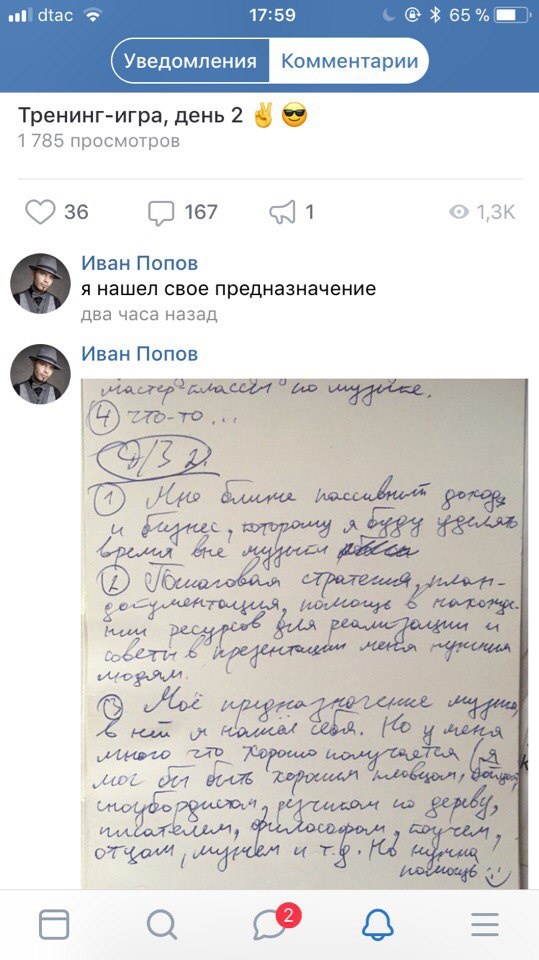 dtac 17:59 65 %
Уведомления Комментарии
Тренинг-игра, день 2 ✌😎
1 785 просмотров
36 167 1 1,3K
Иван Попов
я нашел свое предназначение
два часа назад
Иван Попов
мастер "классы" по музыке.
④ что-то...
Д/З 2.
① Мне ближе пассивный доход
и бизнес, которому я буду уделять
время вне музыки
② Пошаговая стратегия, план-
документация, помощь в нахожде-
нии ресурсов для реализации и
советы в презентации меня нужным
людям.
③ Моё предназначение музыка,
в ней я нашёл себя. Но у меня
много что хорошо получается (я
мог бы быть хорошим пловцом,
сноубордистом, резчиком по дереву,
писателем, философом, коучем,
отцом, мужем и т.д. Но нужна
помощь :)
2